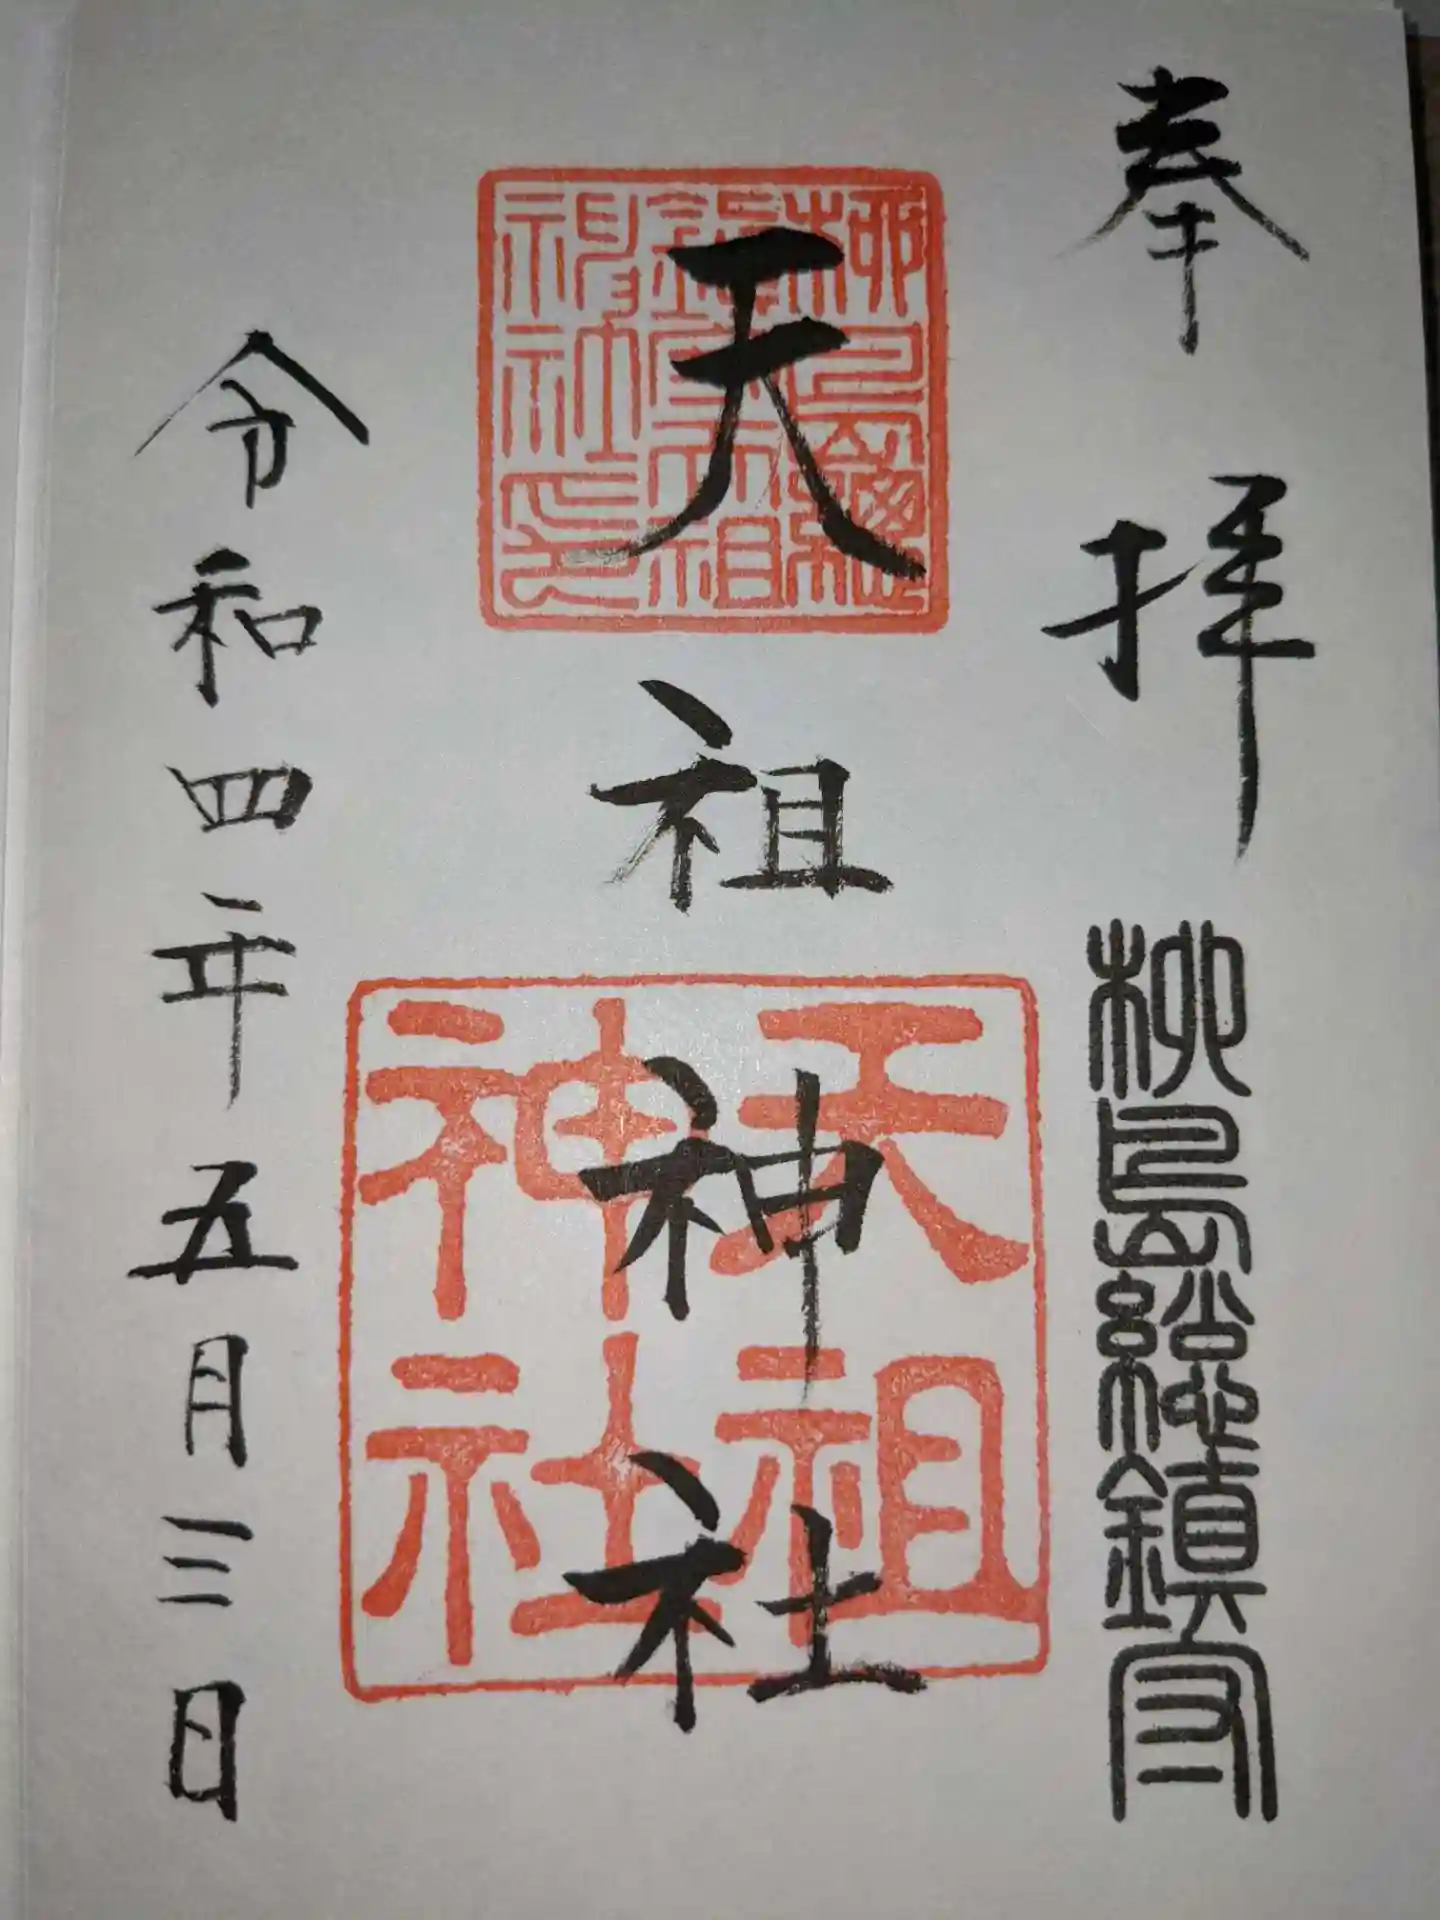 奉拝
柳島総鎮守
天祖神社
柳島総
鎮守天祖
神社之印
天祖
神社
令和四年五月三日